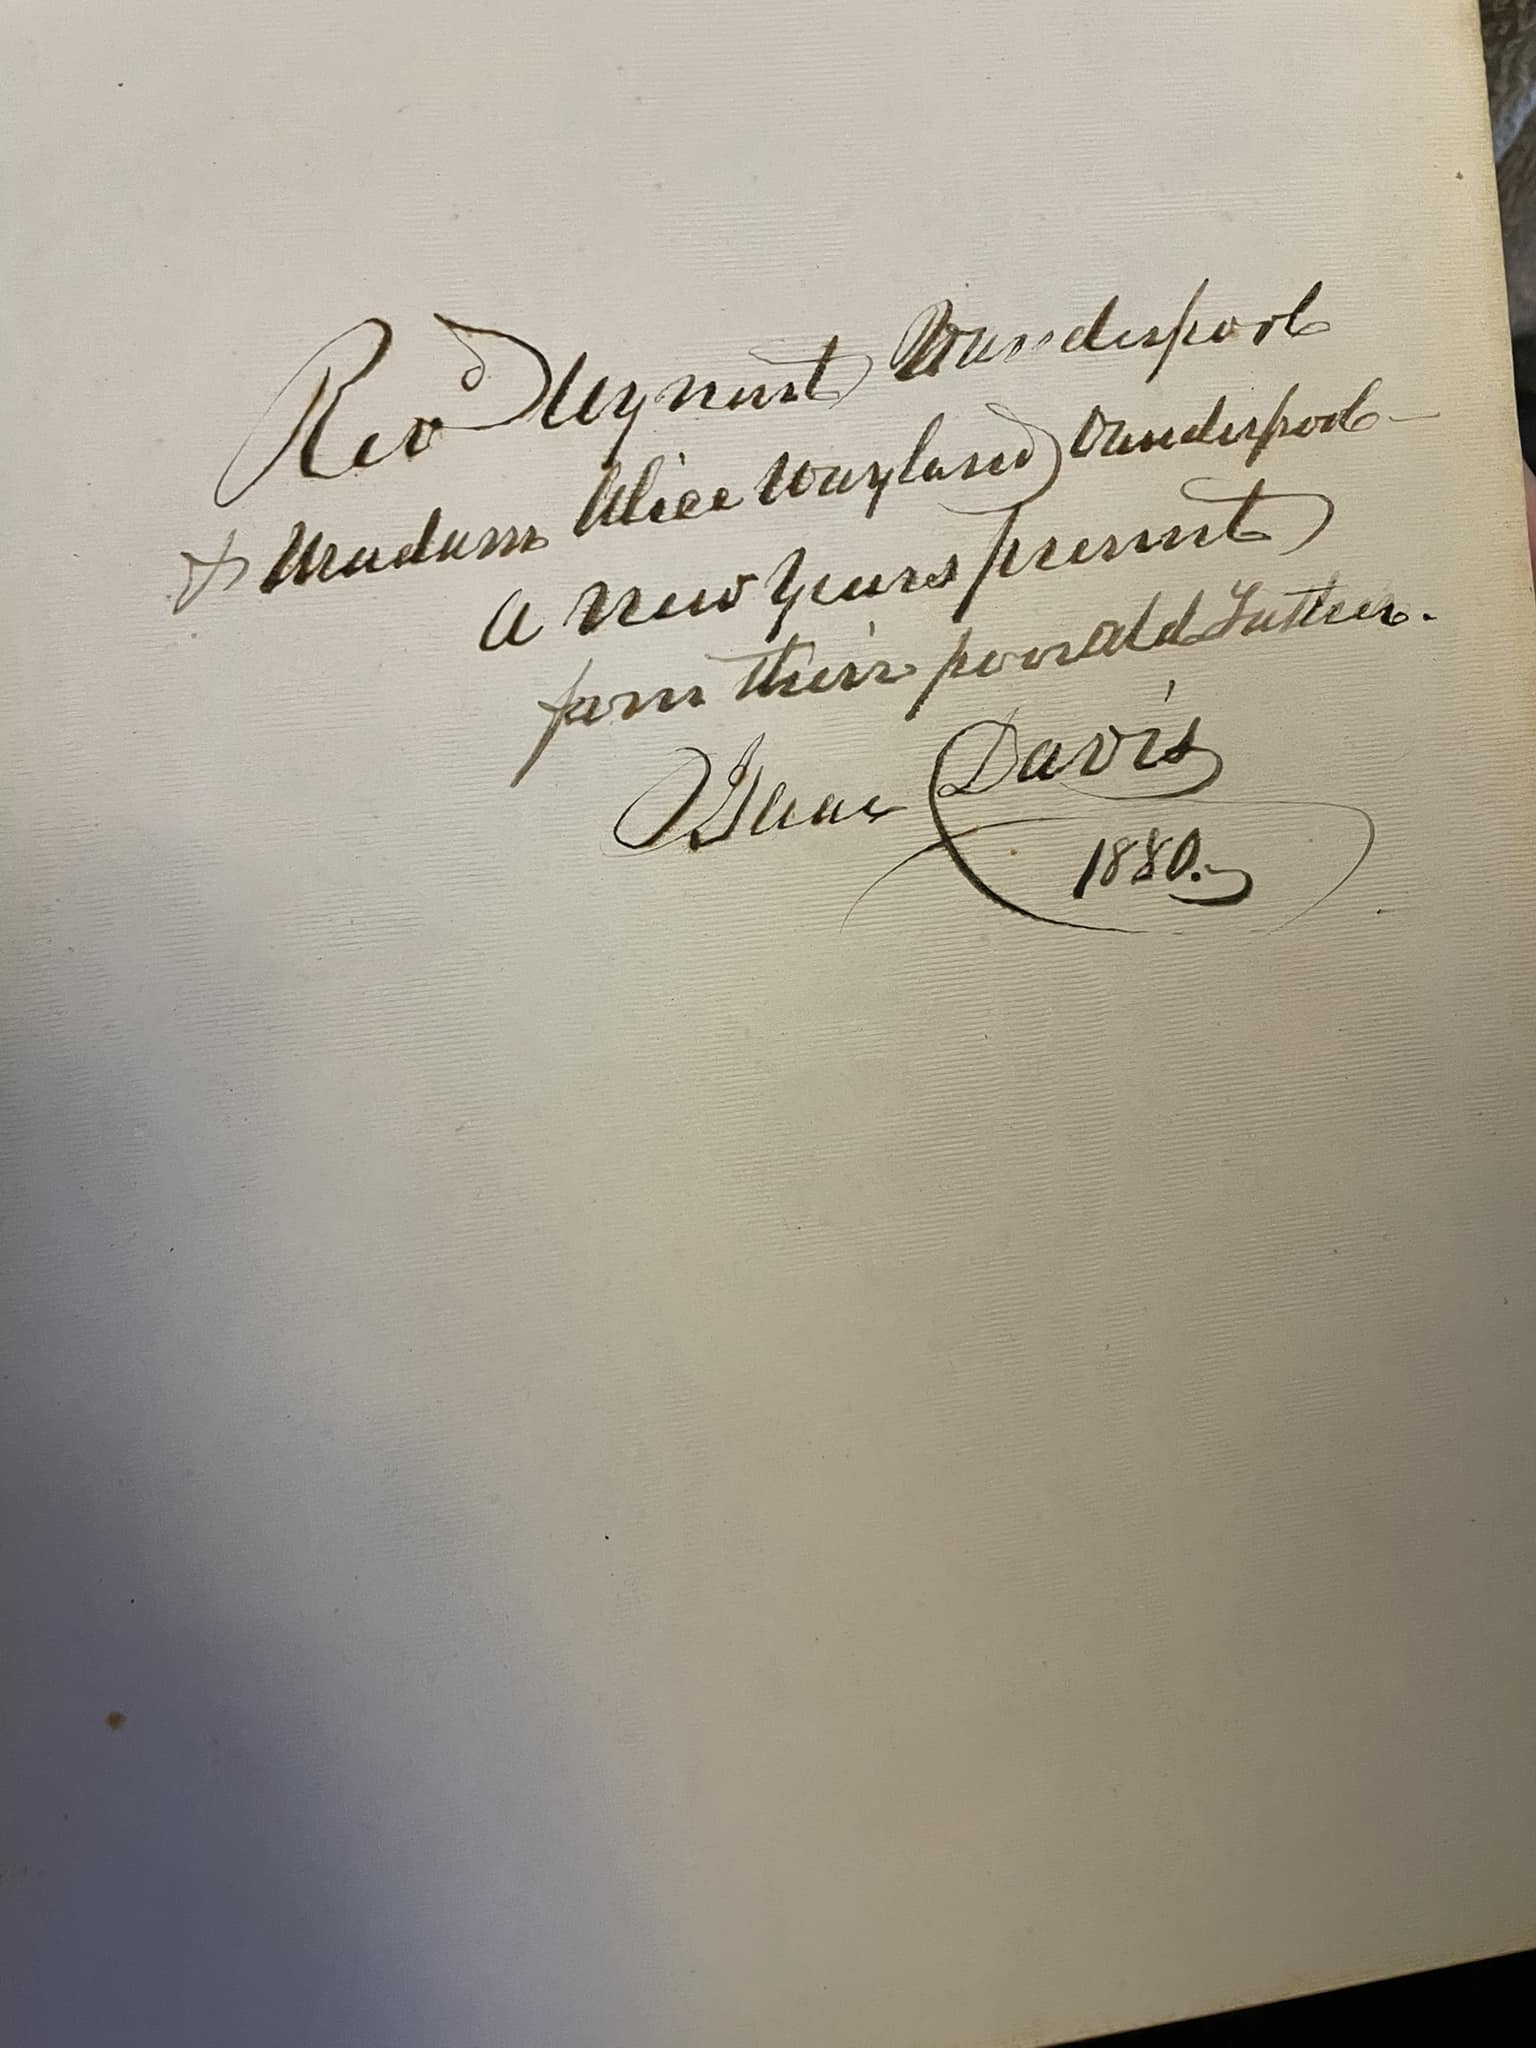 Revd Wynant Vanderpool
& Madam Alice Wayland Vanderpool—
A New Years present
from their poor old Father.
Isaac Davis
1880.